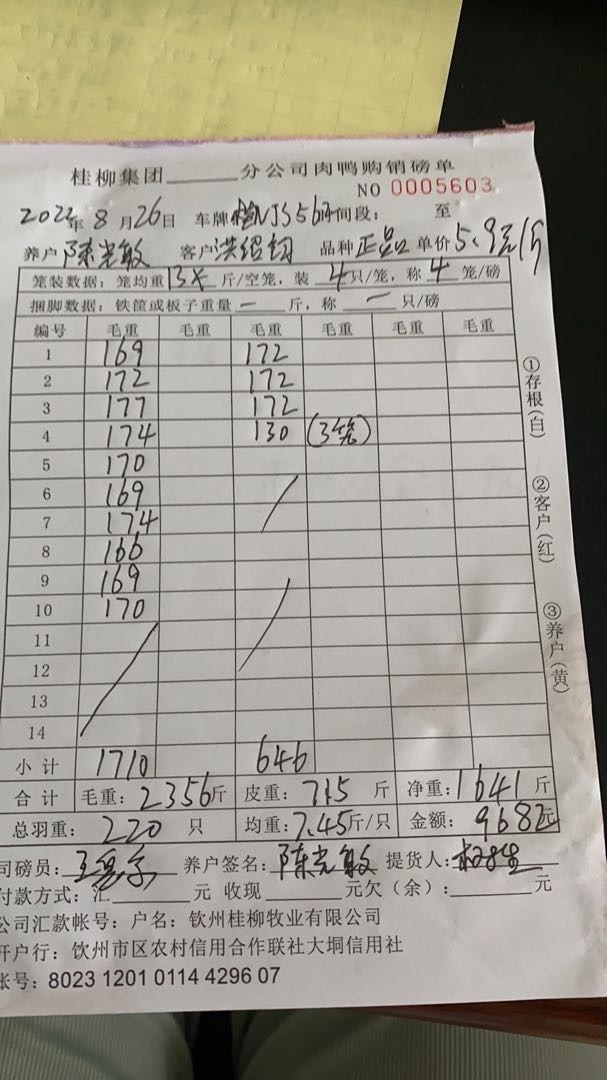 桂柳集团______分公司肉鸭购销磅单
NO 0005603
2022年8月26日 车牌 NJS56 时间段： 至
养户 陈光敏 客户 洪绍 品种 正品 单价 5.9元/斤
笼装数据：笼均重13 斤/空笼，装 4只/笼，称 4 笼/磅
捆脚数据：铁筐或板子重量 — 斤，称 — 只/磅
编号 毛重 毛重 毛重 毛重 毛重 毛重
1 169 172
2 172 172
3 177 172
4 174 130 (3笼)
5 170
6 169
7 174
8 166
9 169
10 170
11
12
13
14
小计 1710 646
合计 毛重：2356斤 皮重：715 斤 净重：1641斤
总羽重：220 只 均重：7.45斤/只 金额：9682元
司磅员： 养户签名：陈光敏 提货人：
付款方式：汇______元 收现______元欠（余）：______元
公司汇款帐号：户名：钦州桂柳牧业有限公司
开户行：钦州市区农村信用合作联社大垌信用社
帐号：8023 1201 0114 4296 07
①存根(白)
②客户(红)
③养户(黄)